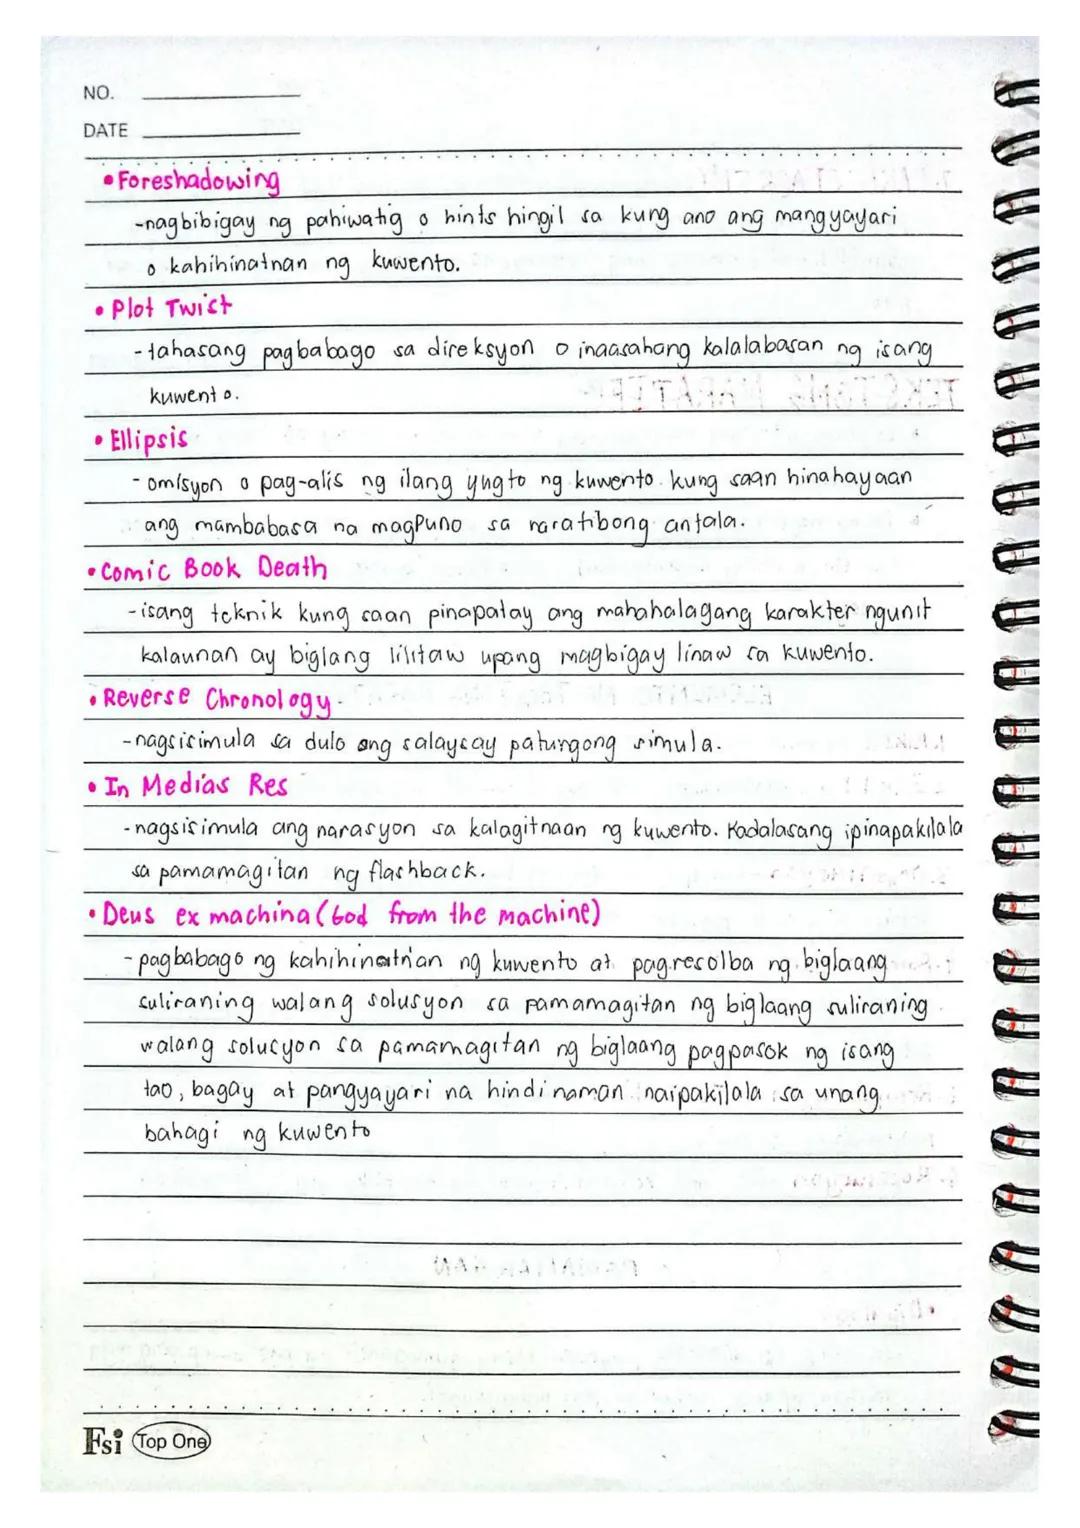 NO.
DATE
• Foreshadowing
-nagbibigay ng pahiwatig o hints hingil sa kung ano ang mangyayari
o kahihinatnan ng kuwento.
• Plot Twist
-tahasang pagbabago sa direksyon o inaasahang kalalabasan ng isang
kuwento.
• Ellipsis
- omisyon o pag-alis ng ilang yugto ng kuwento kung saan hinahayaan
ang mambabasa na magpuno sa naratibong antala.
• Comic Book Death
-isang teknik kung saan pinapatay ang mahahalagang karakter ngunit
kalaunan ay biglang lilitaw upang magbigay linaw sa kuwento.
• Reverse Chronology
-nagsisimula sa dulo ang salaysay patungong simula.
• In Medias Res
-nagsisimula ang narasyon sa kalagitnaan ng kuwento. Kadalasang ipinapakilala
sa pamamagitan ng flashback.
• Deus ex machina (God from the machine)
-pagbabago ng kahihinatnan ng kuwento at pagresolba ng biglaang
suliraning walang solusyon sa pamamagitan ng biglaang suliraning
walang solusyon sa pamamagitan ng biglaang pagpasok ng isang
tao, bagay at pangyayari na hindi naman naipakilala sa unang
bahagi ng kuwento
Fsi Top One